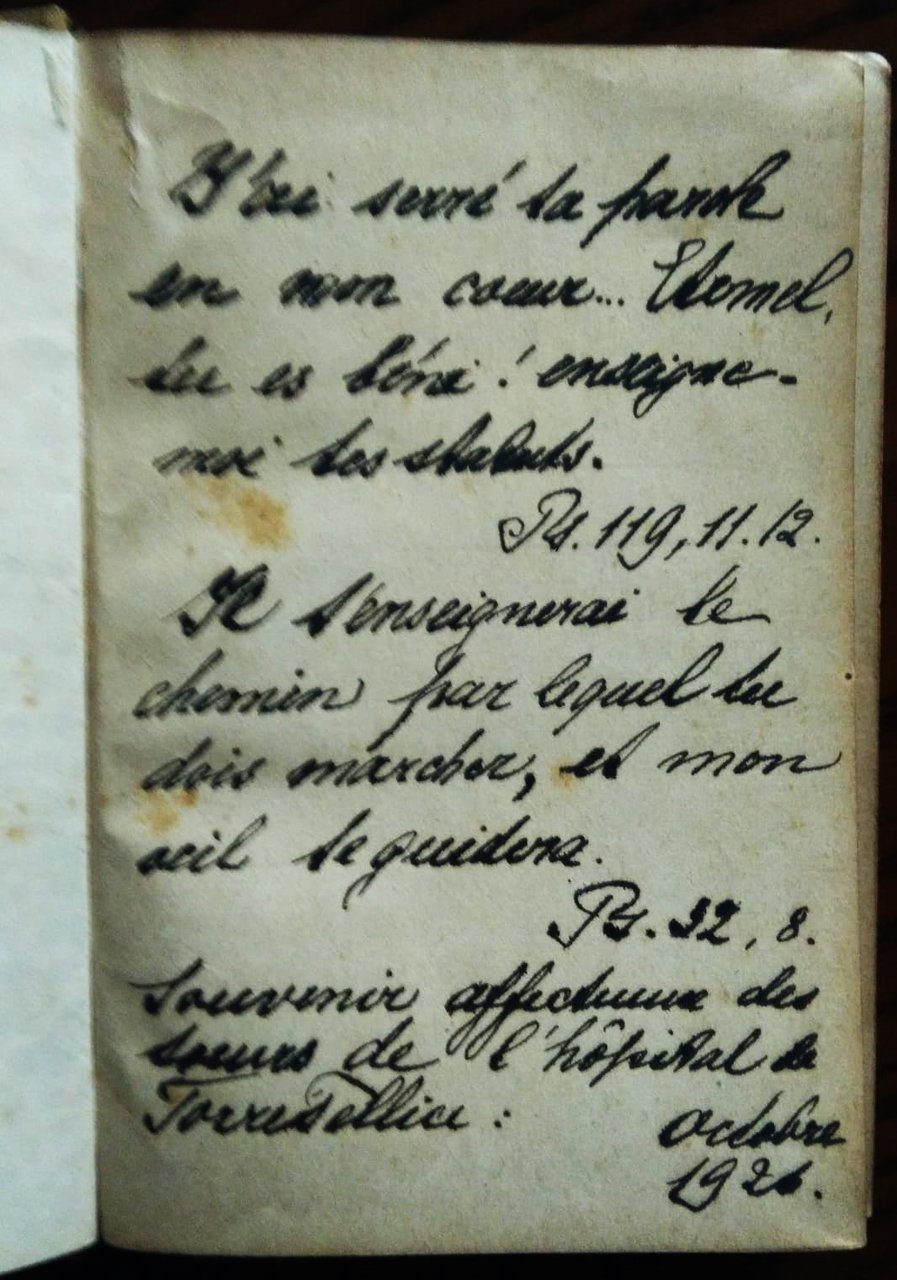 J'ai serré ta parole
en mon coeur... Eternel,
tu es béni! enseigne-
moi tes statuts.
Ps. 119, 11. 12.
Je t'enseignerai le
chemin par lequel tu
dois marcher, et mon
oeil te guidera.
Ps. 32, 8.
Souvenir affectueux des
soeurs de l'hôpital de
Torre Pellice :
octobre